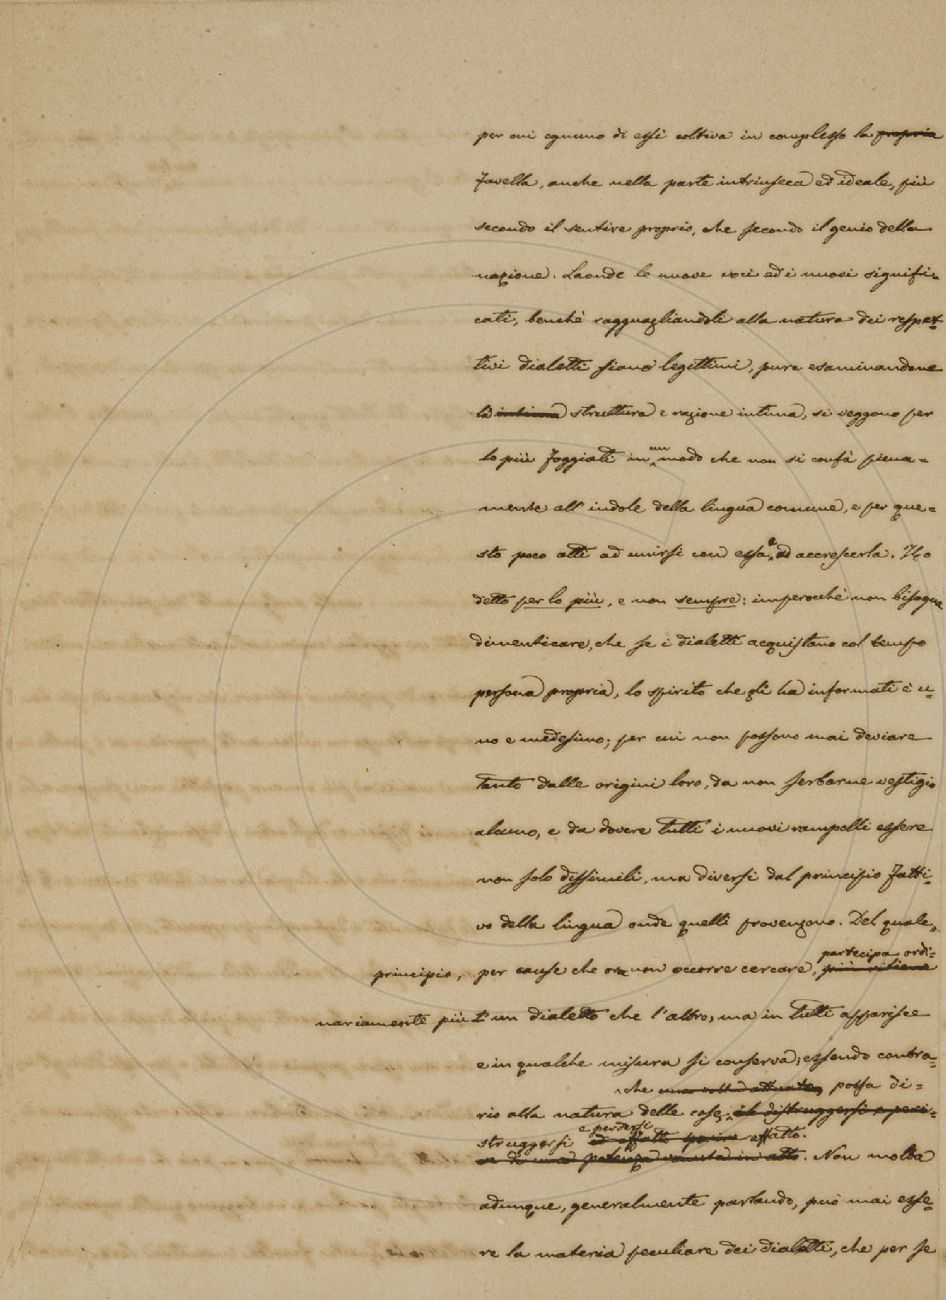 per cui ognuno di essi coltiva in complesso la propria
favella, anche nella parte intrinseca ed ideale, più
secondo il sentire proprio, che secondo il genio della
nazione. Laonde le nuove voci ed i nuovi signifi-
cati, benchè ragguagliandoli alla natura dei rispet-
tivi dialetti siano legittimi, pure esaminandone
la intima struttura e ragione intima, si veggono per
lo più foggiati in un modo che non si confà piena=
mente all'indole della lingua comune, e per que=
sto poco atti ad unirsi con essa e ad accrescerla. Ho
detto per lo più, e non sempre: imperocchè non bisogna
dimenticare, che se i dialetti acquistano col tempo
persona propria, lo spirito che gli ha informati è u=
no e medesimo; per cui non possono mai deviare
tanto dalle origini loro, da non serbarne vestigio
alcuno, e da dovere tutti i nuovi rampolli essere
non solo dissimili, ma diversi dal principio fatti-
vo della lingua onde quelli provengono. Del quale
partecipa ordi=
principio, per cause che ora non occorre cercare, più ritiene
nariamente più l'un dialetto che l'altro, ma in tutti apparisce
e in qualche misura si conserva; essendo contra=
che una volta attuata, possa di=
rio alla natura delle cose, il distruggersi
e perdersi
struggersi affatto.
potenza venuta in atto. Non molta
adunque, generalmente parlando, può mai esse=
re la materia peculiare dei dialetti, che per se